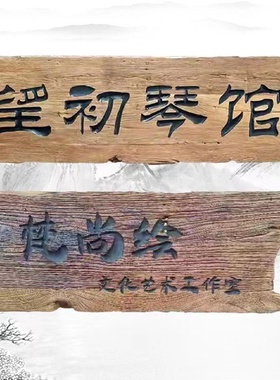 望初琴馆
梵尚绘
文化艺术工作室